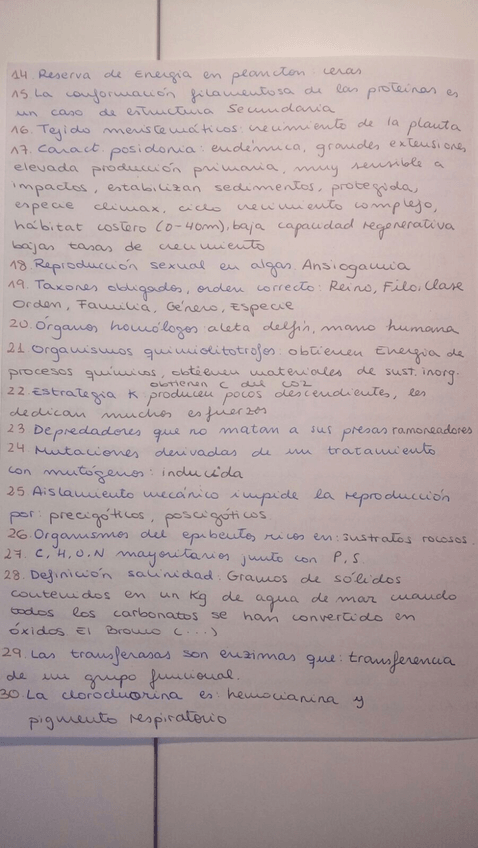 14. Reserva de Energía en plancton: ceras
15 La conformación filamentosa de las proteínas es
un caso de estructura Secundaria
16. Tejido meristemáticos: crecimiento de la planta
17. Caract. posidonia: endémica, grandes extensiones
elevada producción primaria, muy sensible a
impactos, estabilizan sedimentos, protegida,
especie climax, ciclo crecimiento complejo,
hábitat costero (0-40m), baja capacidad regenerativa
bajas tasas de crecimiento
18. Reproducción sexual en algas. Ansiogamia
19. Taxones obligados, orden correcto: Reino, Filo, Clase
Orden, Familia, Género, Especie
20. Órganos homólogos: aleta delfín, mano humana
21 Organismos quimiolitotrofos: obtienen Energía de
procesos químicos, obtienen materiales de sust. inorg.
obtienen C del CO2
22. Estrategia K producen pocos descendientes, les
dedican muchos esfuerzos
23 Depredadores que no matan a sus presas ramoneadores
24 Mutaciones derivadas de un tratamiento
con mutógenos: inducida
25 Aislamiento mecánico impide la reproducción
por: precigóticos, poscigóticos
26. Organismos del epibentos ricos en: sustratos rocosos.
27. C, H, O, N mayoritarios junto con P, S
28. Definición salinidad: Gramos de sólidos
contenidos en un Kg de agua de mar cuando
todos los carbonatos se han convertido en
óxidos El Bromo (...)
29. Las transferasas son enzimas que: transferencia
de un grupo funcional.
30. La clorocluorina es: hemocianina y
pigmento respiratorio